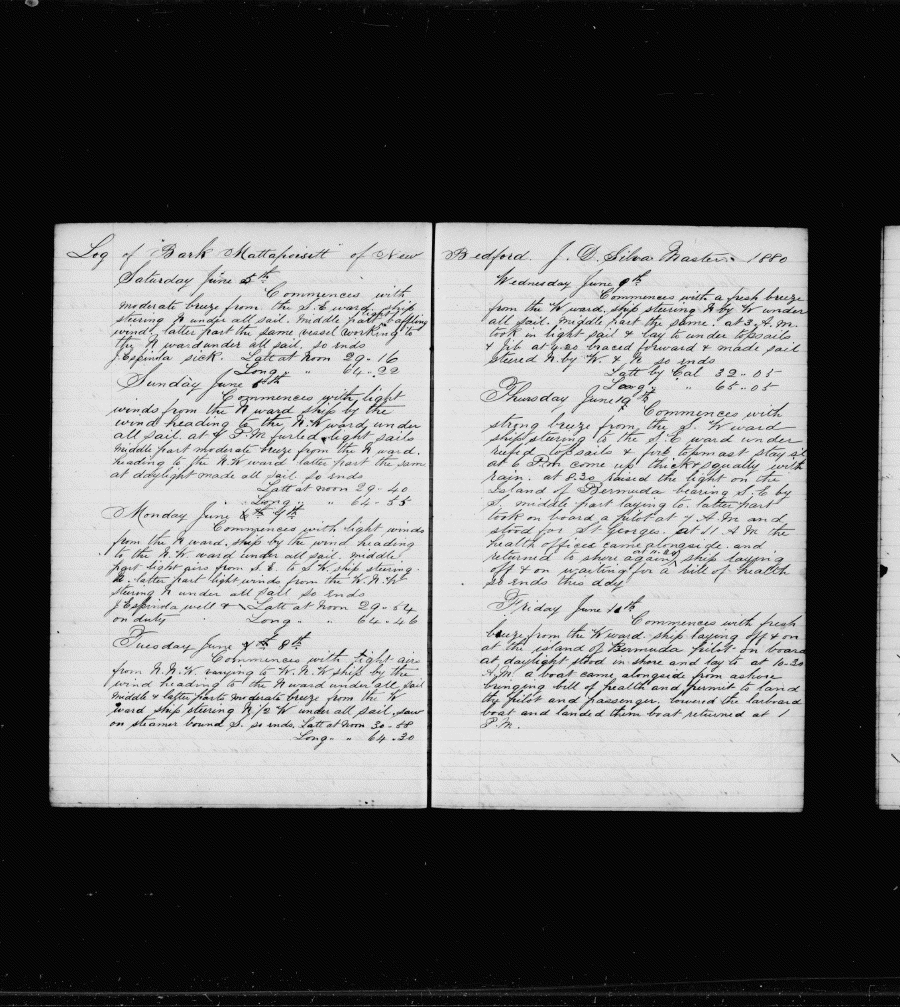 Log of "Bark Mattapoisett" of New
Saturday June 5th
Commences with
moderate breeze from the S.E ward, ship
stering N under all sail. Middle part light baffling
wind, latter part the same vessel working to
the N ward under all sail. so ends
J. Espinda sick. Latt at Noon 29-16
Long " " 64-22
Sunday June 6th
Commences with light
winds from the N ward ship by the
wind heading to the N.W ward, under
all sail. at 7 P.M furled light sails
Middle part moderate breeze from the N ward.
heading to the N.W ward latter part the same
at daylight made all sail. so ends
Latt at noon 29-40
Long " " 64-55
Monday June 7th
Commences with light winds
from the N ward, ship by the wind heading
to the N.W. ward under all sail. middle
part light airs from S.E. to S.W. ship stering
N. latter part light winds from the W.N.W
stering N under all sail so ends
J. Espinda well & Latt at Noon 29-54
on duty Long " " 64-46
Tuesday June 8th
Commences with light airs
from N.N.W. varying to W.N.W ship by the
wind heading to the N ward under all sail
Middle & latter parts moderate breeze from the W
ward ship stering N 1/2 W under all sail. saw
on steamer bound S. so ends. Latt at Noon 30-58
Long " " 64-30
Bedford. J. D. Silva Master. 1880
Wednesday June 9th
Commences with a fresh breeze
from the W ward, ship stering N by W under
all sail. middle part the same. at 3. A.M.
took in light sail & lay to under topsails
& Jib. at 4.20 braced forward & made sail
steerd N. by W. & N. so ends
Latt by Cal 32-05
Long " " 65-05
Thursday June 10th
Commences with
strong breeze from the S. W ward
ship stering to the S. E ward under
reefd topsails & fore topmast stay sl
at 6 P.m come up thick & squally with
rain. at 8.30 raised the light on the
Island of Bermuda bearing S. E by
S, middle part laying to. latter part
took on board a pilot at 7 A.M and
stood for St Georges. at 11 A.M the
health officed came alongside. and
returned to shore again, ship laying
off & on waiting for a bill of health
so ends this day
Friday June 11th
Commences with fresh
breeze from the W ward ship laying off & on
at the island of Bermuda pilot on board
at daylight stood in shore and lay to at 10-30
A.M. a boat came alongside from ashore
bringing bill of health and permit to land
the pilot and passenger. lowerd the larboard
boat and landed them boat returned at 1
P.M.